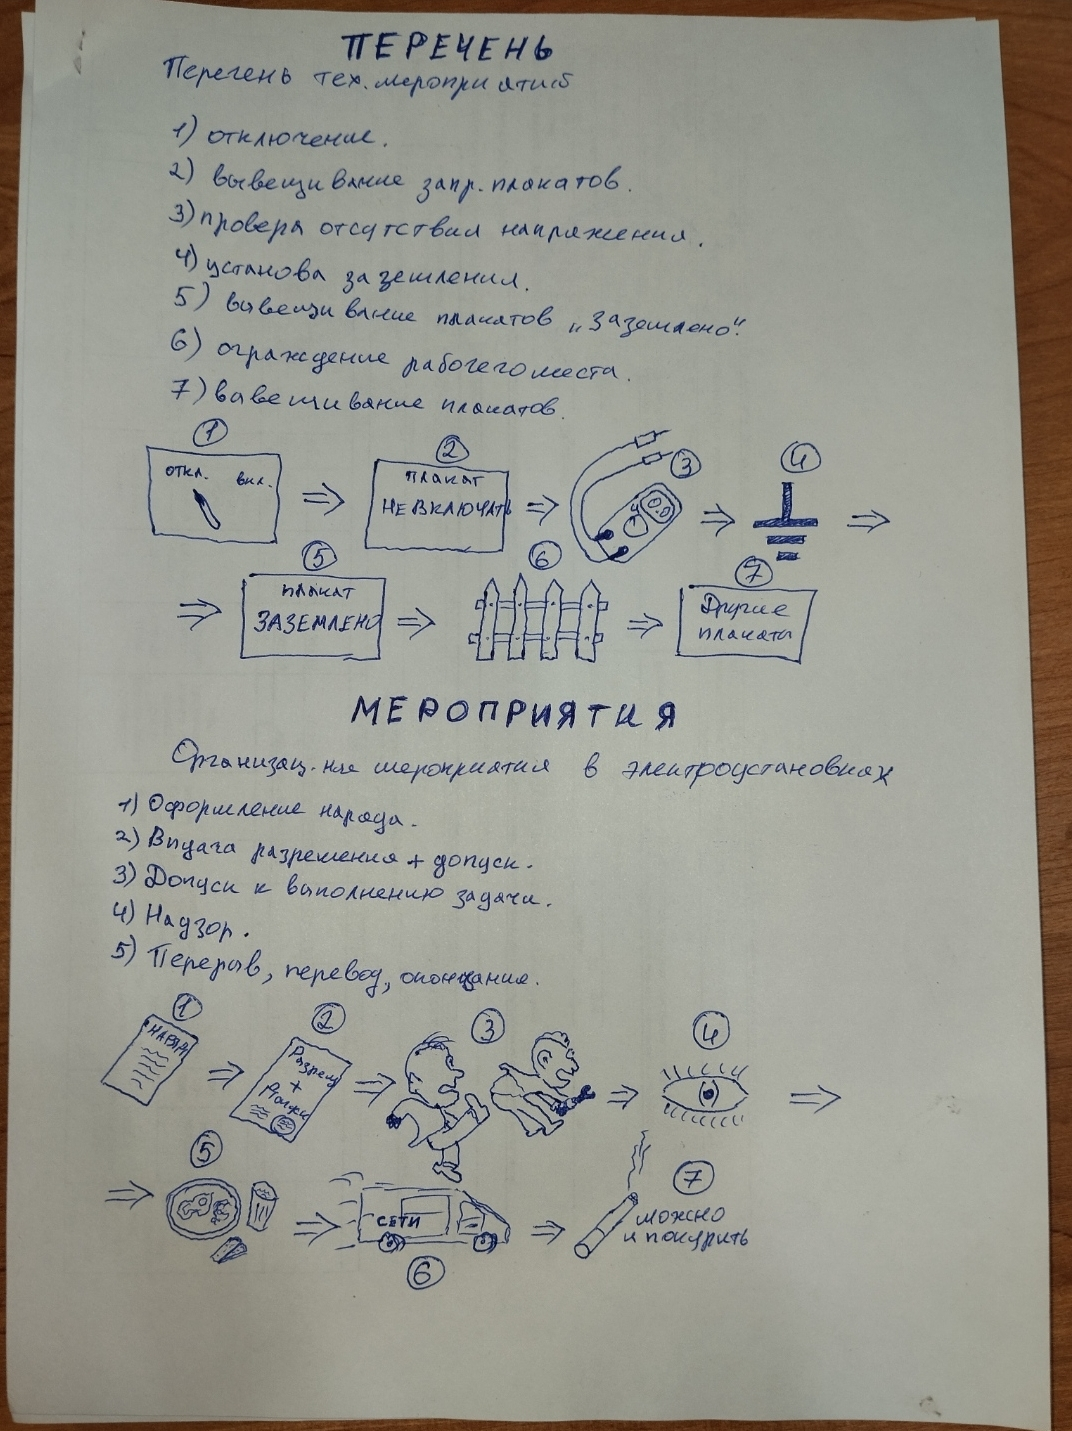 ПЕРЕЧЕНЬ
Перегень тех. мероприятий
1) отключение.
2) вывещивание запр. плакатов.
3) провера отсутствия напряжения.
4) установа заземления.
5) вывещивание плакатов „Заземлено".
6) ограждение рабочего места.
7) вывещивание плакатов.
1
откл. вкл.
2
плакат
НЕ ВКЛЮЧАТЬ
3
4
5
плакат
ЗАЗЕМЛЕНО
6
7
Другие
плакаты
МЕРОПРИЯТИЯ
Организац-ные мероприятия в электроустановках
1) Оформление наряда.
2) Выдача разрешения + допуск.
3) Допуск к выполнению задачи.
4) Надзор.
5) Перерыв, перевод, окончание.
1
НАРЯД
2
Разреш
+
3
4
5
СЕТИ
6
7
можно
и покурить